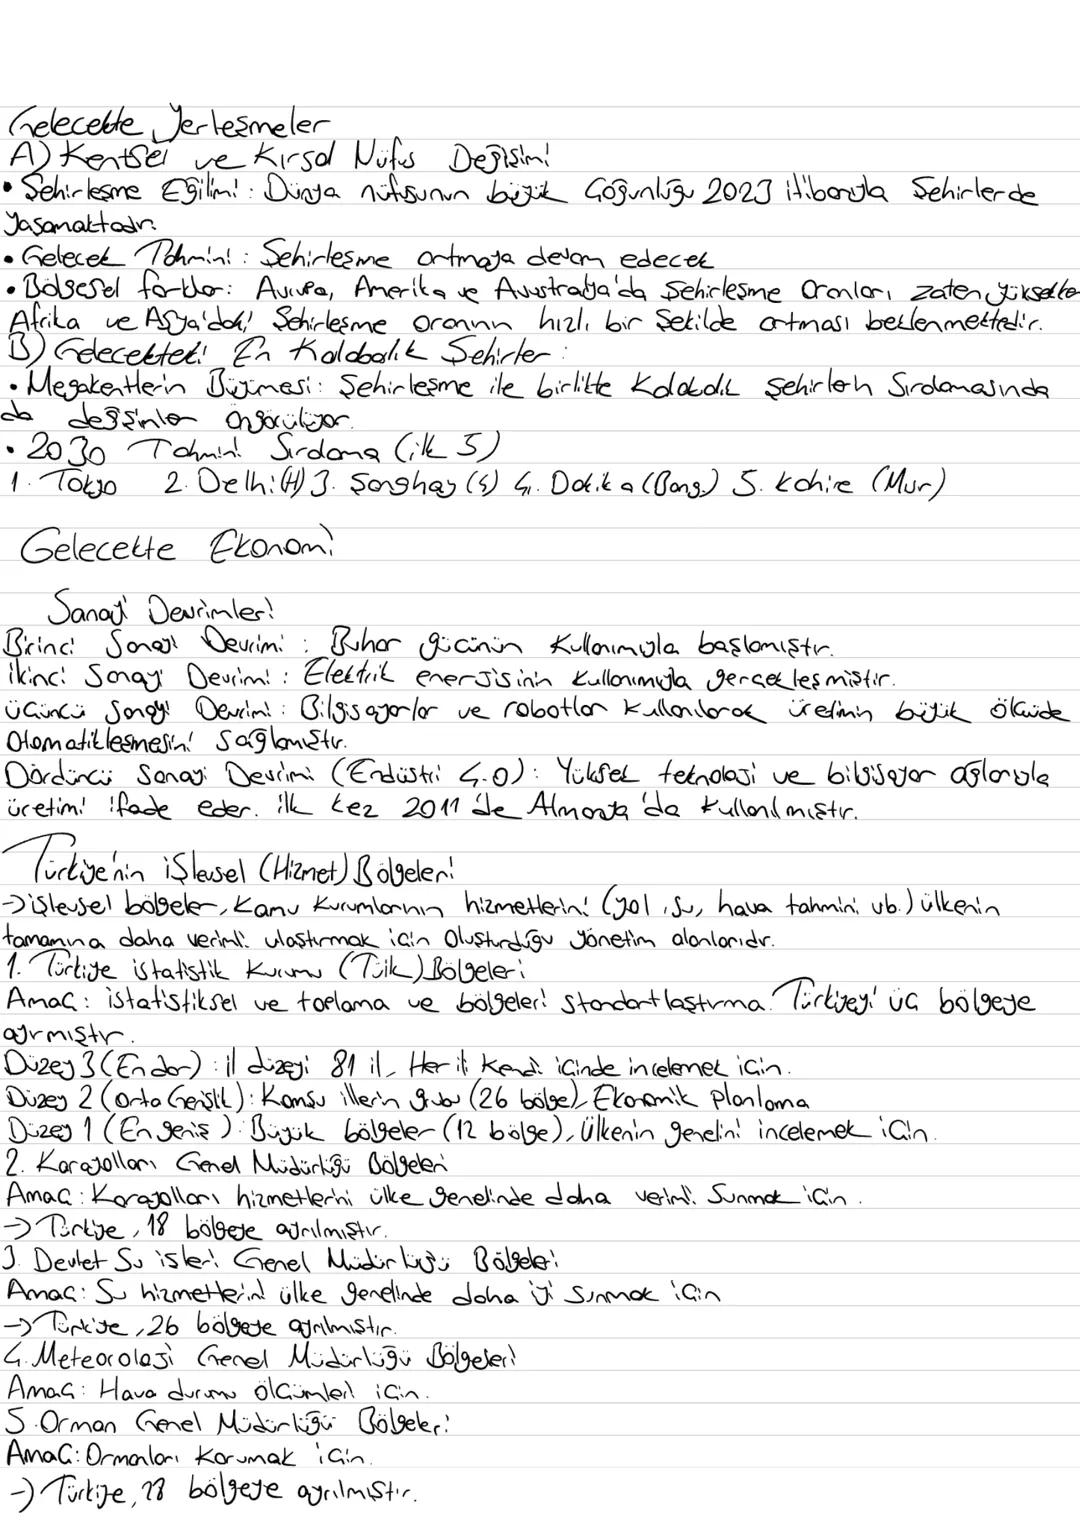 Gelecekte Yerleşmeler
A) Kentsel ve Kırsal Nüfus Değişimi
• Şehirleşme Eğilimi: Dünya nüfusunun büyük çoğunluğu 2023 itibarıyla şehirlerde
yaşamaktadır.
• Gelecek Tahmini: Şehirleşme artmaya devam edecek
• Bölgesel farklar: Avrupa, Amerika ve Avustralya'da şehirleşme oranları zaten yüksekken
Afrika ve Asya'daki şehirleşme oranının hızlı bir şekilde artması beklenmektedir.
B) Gelecekteki En Kalabalık Şehirler:
• Megakentlerin Büyümesi: Şehirleşme ile birlikte Kalabalık şehirlerin sıralamasında
da değişimler öngörülüyor.
• 2030 Tahmini Sıralama (ilk 5)
1. Tokyo 2. Delhi (H) 3. Şanghay (Ç) 4. Dakika (Bang.) 5. Kahire (Mısır)
Gelecekte Ekonomi
Sanayi Devrimleri
Birinci Sanayi Devrimi: Buhar gücünün kullanımıyla başlamıştır.
İkinci Sanayi Devrimi: Elektrik enerjisinin kullanımıyla gerçekleşmiştir.
Üçüncü Sanayi Devrimi: Bilgisayarlar ve robotlar kullanılarak üretimin büyük ölçüde
Otomatikleşmesini sağlamıştır.
Dördüncü Sanayi Devrimi (Endüstri 4.0): Yüksek teknoloji ve bilgisayar ağlarıyla
üretimi ifade eder. ilk kez 2011'de Almanya'da kullanılmıştır.
Türkiye'nin işlevsel (Hizmet) Bölgeleri
→ işlevsel bölgeler, Kamu Kurumlarının hizmetlerini (yol, su, hava tahmini vb.) ülkenin
tamamına daha verimli ulaştırmak için oluşturduğu yönetim alanlarıdır.
1. Türkiye istatistik Kurumu (Tüik) Bölgeleri
Amaç: istatistiksel ve toplama ve bölgeleri standartlaştırma. Türkiyeyi üç bölgeye
ayırmıştır.
Düzey 3 (En dar): il düzeyi 81 il, Her ili kendi içinde incelemek için.
Düzey 2 (Orta Genişlik): Komşu illerin grubu (26 bölge), Ekonomik planlama
Düzey 1 (En geniş): Büyük bölgeler (12 bölge), Ülkenin genelini incelemek için.
2. Karayolları Genel Müdürlüğü Bölgeleri
Amaç: Karayolları hizmetlerini ülke genelinde daha verimli sunmak için.
→ Türkiye, 18 bölgeye ayrılmıştır.
3. Devlet Su işleri Genel Müdürlüğü Bölgeleri
Amaç: Su hizmetlerini ülke genelinde daha iyi sunmak için
→ Türkiye, 26 bölgeye ayrılmıştır.
4. Meteoroloji Genel Müdürlüğü Bölgeleri
Amaç: Hava durumu ölçümleri için.
5. Orman Genel Müdürlüğü Bölgeleri
Amaç: Ormanları korumak için.
→ Türkiye, 28 bölgeye ayrılmıştır.